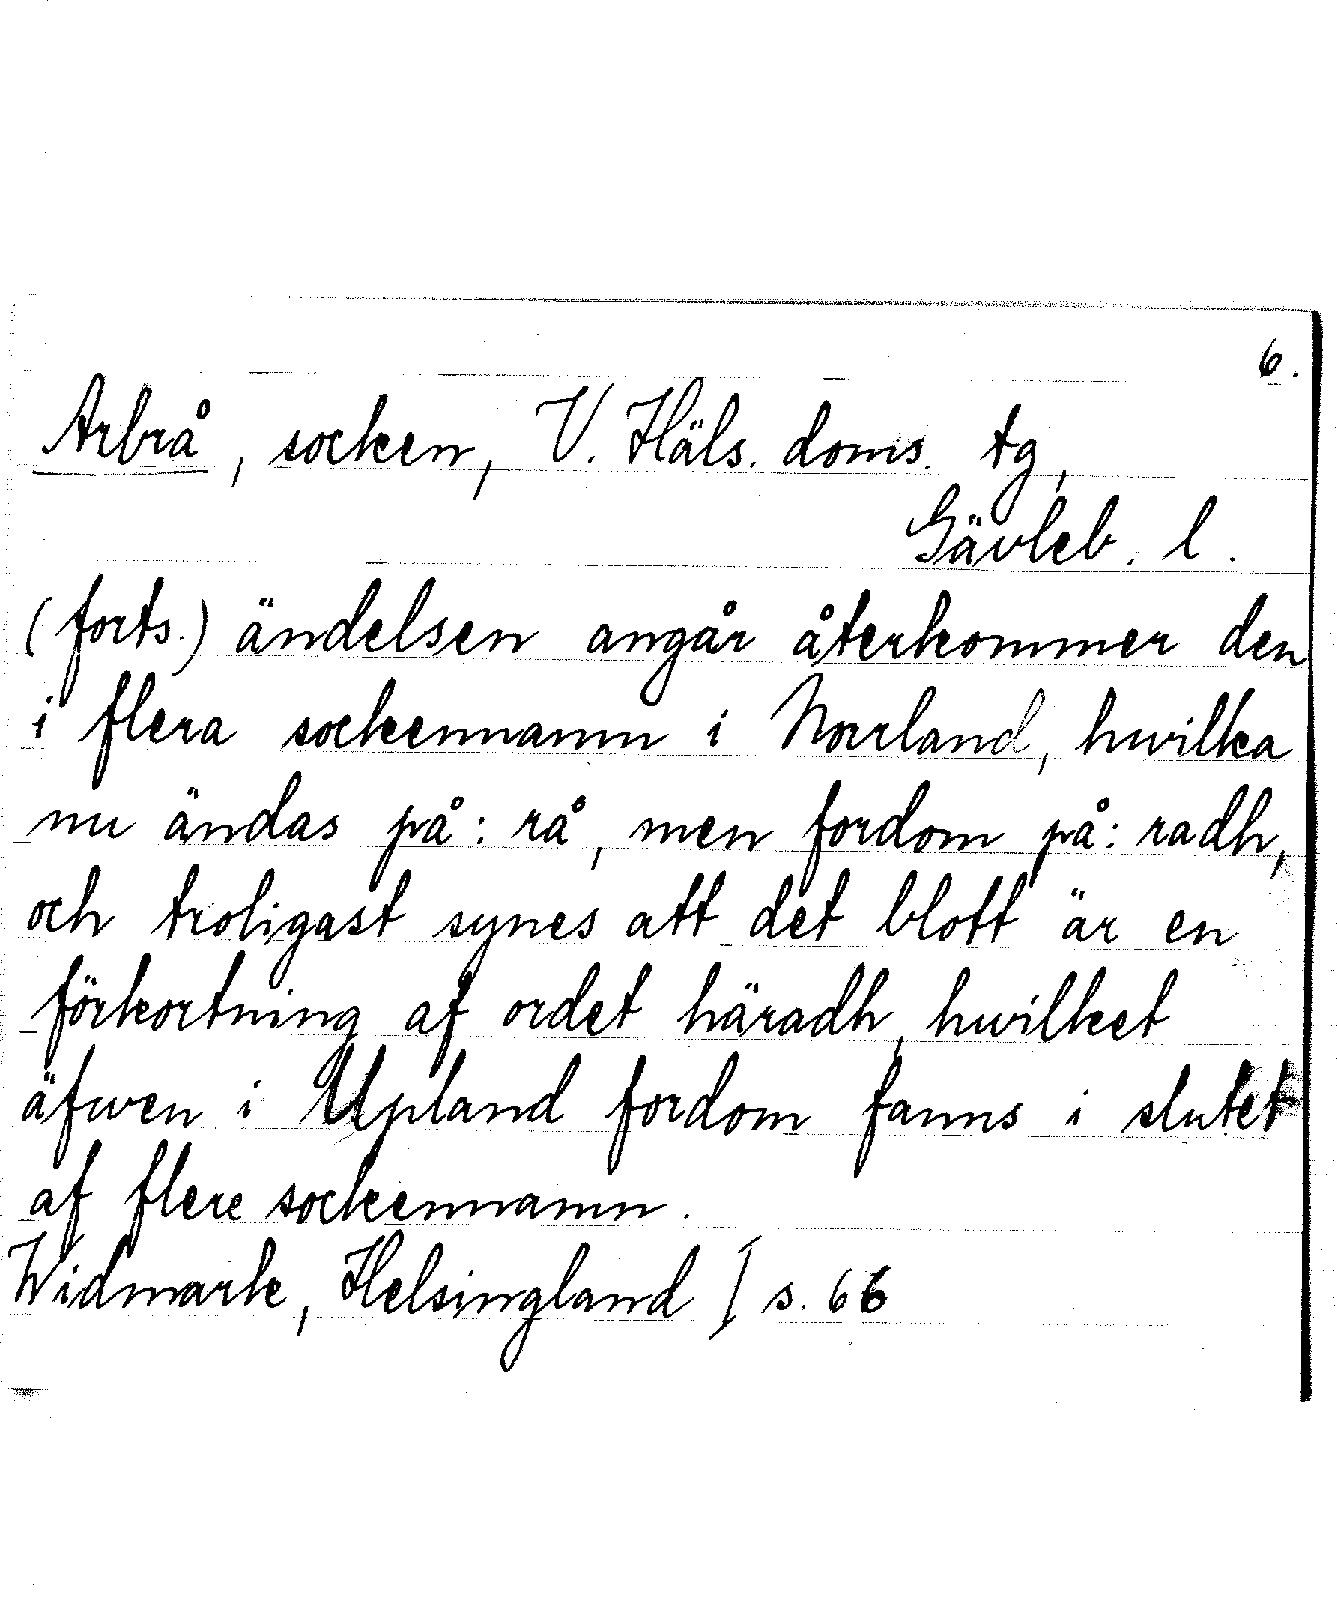 6.
Arbrå, socken, V. Häls. doms. tg,
Gävleb. l.
(forts.) ändelsen angår återkommer den
i flera sockennamn i Norrland, hwilka
nu ändas på: rå, men fordom på: radh,
och troligast synes att det blott är en
förkortning af ordet häradh, hwilket
äfwen i Upland fordom fanns i slutet
af flere sockennamn.
Widmark, Helsingland I s. 66